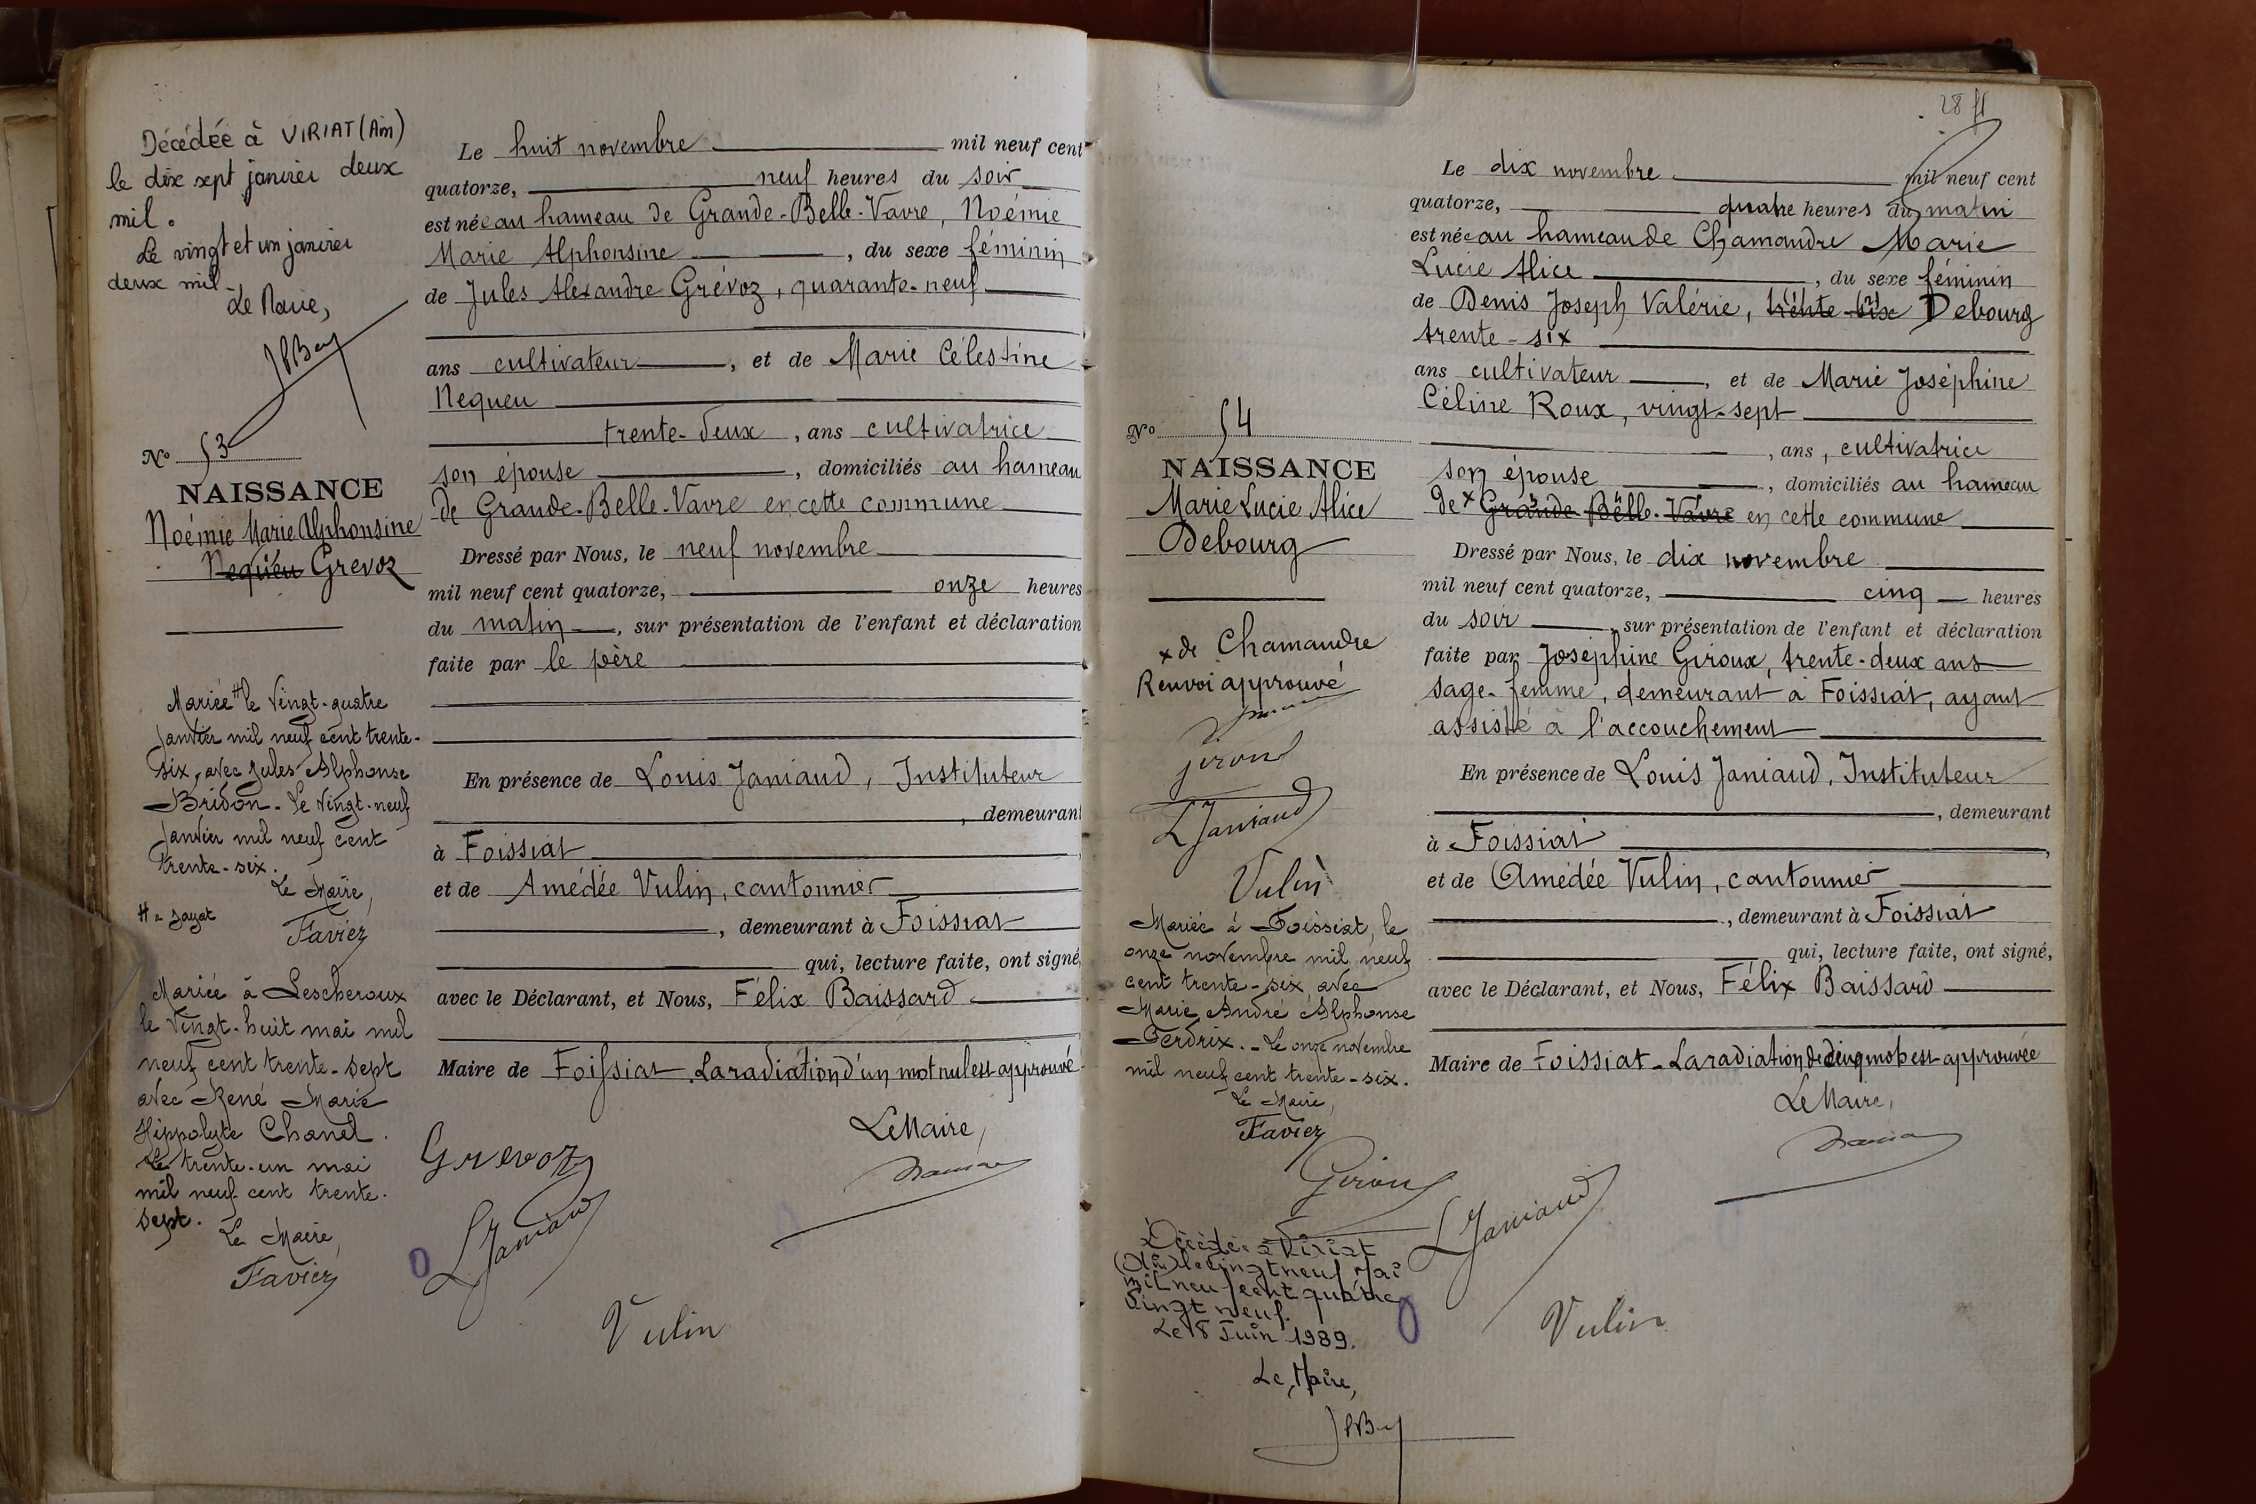 Décédée à VIRIAT (Ain)
le dix sept janvier deux
mil.
Le vingt et un janvier
deux mil
Le Maire,
No 53
NAISSANCE
Noémie Marie Alphonsine
Nequeu Grevoz
Mariée # le vingt-quatre
janvier mil neuf cent trente-
six, avec Jules Alphonse
Bridon. Le vingt-neuf
janvier mil neuf cent
trente-six.
Le Maire,
Favier
# à Jayat
Mariée à Lescheroux
le vingt-huit mai mil
neuf cent trente-sept
avec René Marie
Hippolyte Chanel.
Le trente-un mai
mil neuf cent trente-
sept.
Le Maire,
Favier
Le huit novembre mil neuf cent
quatorze, neuf heures du soir
est née au hameau de Grande-Belle-Vavre, Noémie
Marie Alphonsine , du sexe féminin
de Jules Alexandre Grévoz, quarante-neuf
ans cultivateur , et de Marie Célestine
Nequeu
trente-deux , ans cultivatrice
son épouse , domiciliés au hameau
de Grande-Belle-Vavre en cette commune
Dressé par Nous, le neuf novembre
mil neuf cent quatorze, onze heures
du matin , sur présentation de l'enfant et déclaration
faite par le père
En présence de Louis Janiaud, Instituteur
, demeurant
à Foissiat
et de Amédée Vulin, cantonnier
, demeurant à Foissiat
qui, lecture faite, ont signé,
avec le Déclarant, et Nous, Félix Baissard
Maire de Foissiat. La radiation d'un mot nul est approuvé
Le Maire,
Grevoz
L Janiaud
Vulin
28 ff
No 54
NAISSANCE
Marie Lucie Alice
Debourg
x de Chamandre
Renvoi approuvé
Giroux
L Janiaud
Vulin
Mariée à Foissiat, le
onze novembre mil neuf
cent trente-six avec
Marie André Alphonse
Perdrix. - Le onze novembre
mil neuf cent trente-six.
Le Maire,
Favier
Giroux
Décédée à Viriat
(Ain) le vingt neuf Mai
mil neuf cent quatre
vingt neuf.
Le 8 Juin 1989.
Le Maire,
Le dix novembre mil neuf cent
quatorze, quatre heures du matin
est née au hameau de Chamandre Marie
Lucie Alice , du sexe féminin
de Denis Joseph Valérie, trente-six Debourg
trente-six
ans cultivateur , et de Marie Joséphine
Céline Roux, vingt-sept
, ans, cultivatrice
son épouse , domiciliés au hameau
de x Grande-Belle-Vavre en cette commune
Dressé par Nous, le dix novembre
mil neuf cent quatorze, cinq heures
du soir , sur présentation de l'enfant et déclaration
faite par Joséphine Giroux, trente-deux ans
sage-femme, demeurant à Foissiat, ayant
assisté à l'accouchement
En présence de Louis Janiaud, Instituteur
, demeurant
à Foissiat ,
et de Amédée Vulin, cantonnier
, demeurant à Foissiat
qui, lecture faite, ont signé,
avec le Déclarant, et Nous, Félix Baissard
Maire de Foissiat - La radiation de cinq mots est approuvée
Le Maire,
L Janiaud
Vulin